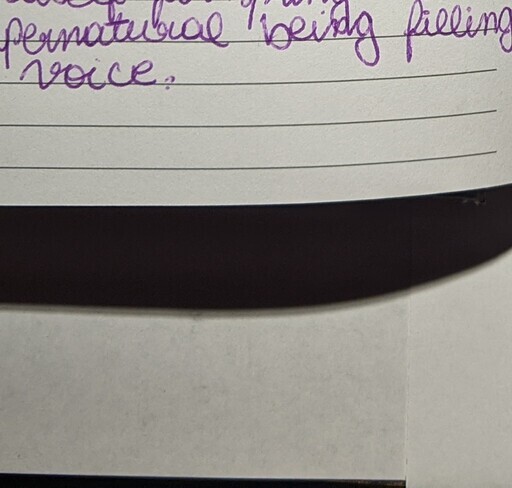 pernatural being filling
voice.